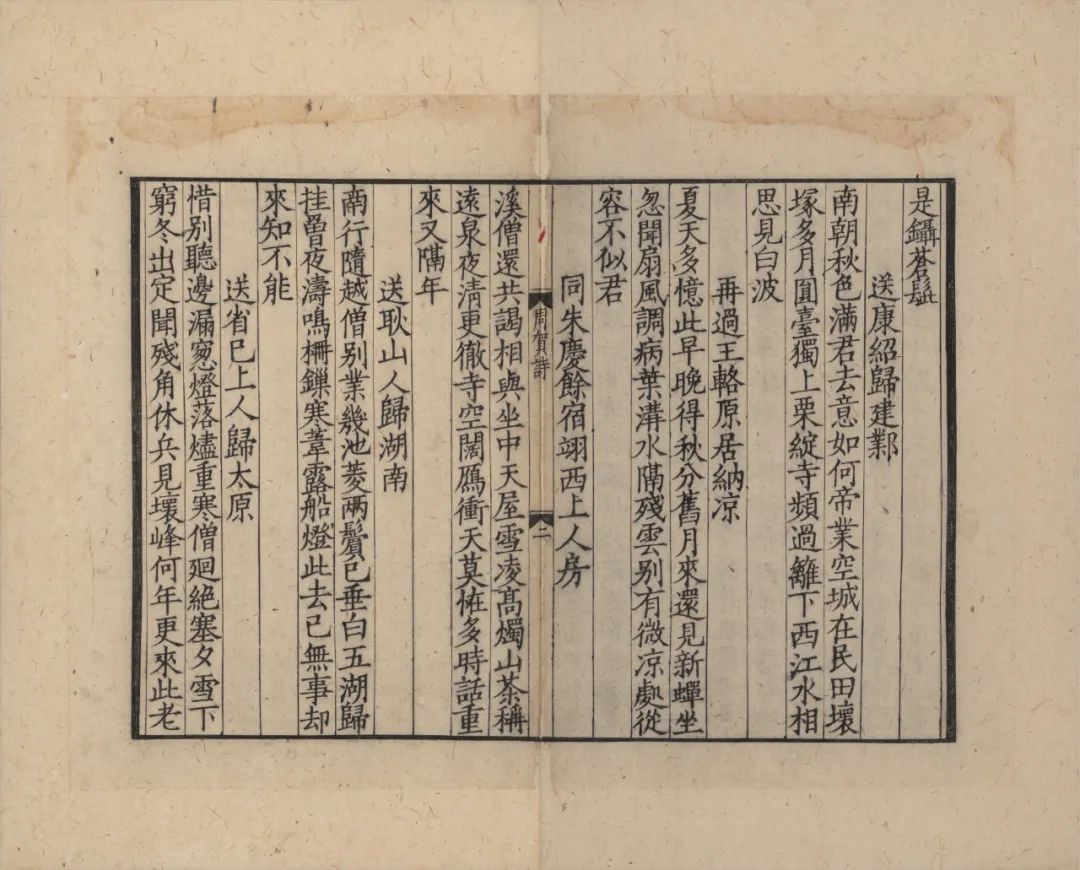 是鑷蒼髭
送康紹歸建鄴
南朝秋色滿君去意如何帝業空城在民田壞
塚多月圓臺獨上栗綻寺頻過籬下西江水相
思見白波
再過王輅原居納凉
夏天多憶此早晚得秋分舊月來還見新蟬坐
忽聞扇風調病葉溝水隔殘雲别有微凉處從
容不似君
同朱慶餘宿翊西上人房
溪僧還共謁相與坐中天屋雪凌高燭山茶稱
遠泉夜清更徹寺空闊鴈衝天莫恠多時話重
來又隔年
送耿山人歸湖南
南行隨越僧别業幾池菱兩鬢已垂白五湖歸
挂罾夜濤鳴柵鏁寒葦露船燈此去已無事却
來知不能
送省已上人歸太原
惜别聽邊漏窻燈落燼重寒僧廻絶塞夕雪下
窮冬出定聞殘角休兵見壞峰何年更來此老
周賀詩
二